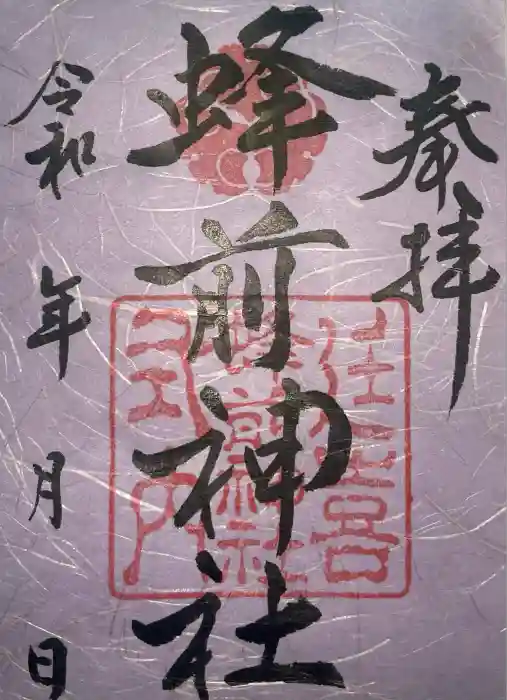 奉拝
蜂前神社
令和 年 月 日